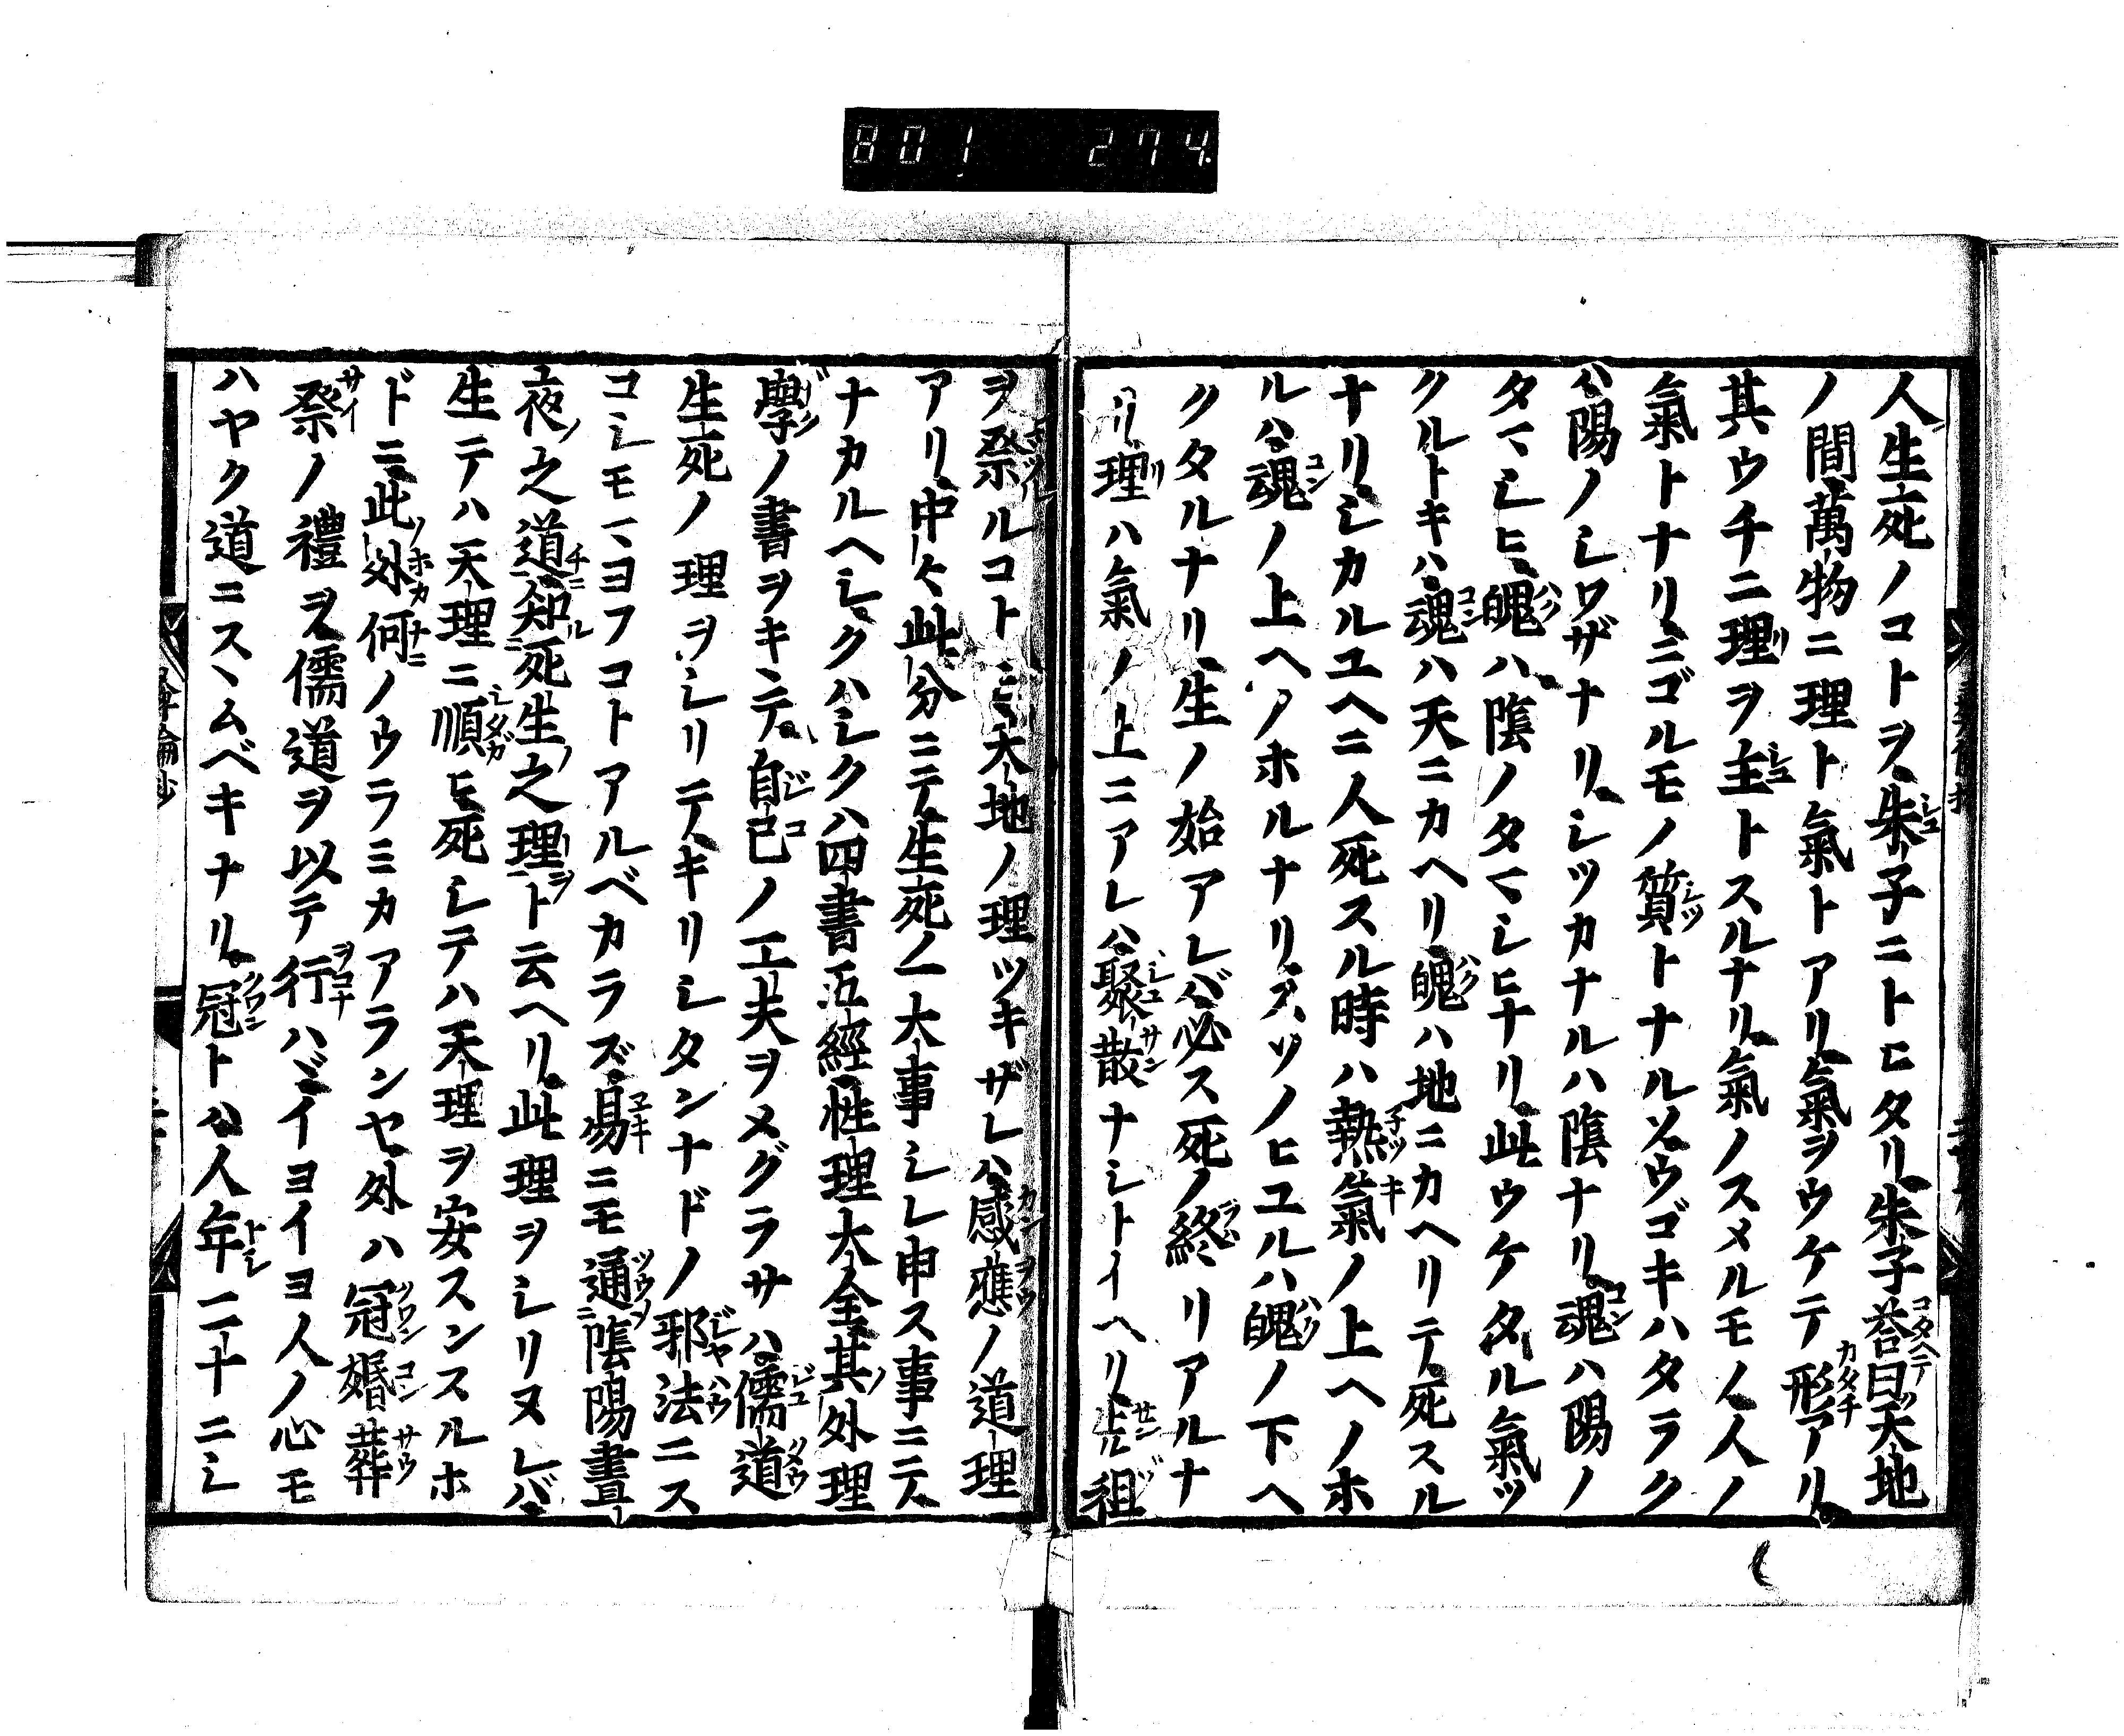 801 274
人生死ノコトヲ、朱子ニトヒタリ、朱子答曰、天地
ノ間萬物ニ理ト氣トアリ、氣ヲウケテ形アリ、
其ウチニ理ヲ主トスルナリ、氣ノスメルモノ人ノ
氣トナリ、ニゴルモノ質トナル、ソウゴキハタラク
ハ陽ノシワザナリ、シツカナルハ陰ナリ、魂ハ陽ノ
タマシヒ、魄ハ陰ノタマシヒナリ、此ウケタル氣ツ
クルトキハ、魂ハ天ニカヘリ、魄ハ地ニカヘリテ、死スル
ナリ、シカルユヘニ人死スル時ハ熱氣ノ上ヘノホ
ルハ、魂ノ上ヘノホルナリ、スソノヒユルハ魄ノ下ヘ
クタルナリ、生ノ始アレバ必ス死ノ終リアルナ
リ、理ハ氣ノ上ニアレハ、聚散ナシトイヘリ、先祖
ヲ祭ルコトモ、天地ノ理ツキザレハ、感應ノ道理
アリ、中々此分ニテ、生死ノ一大事シレ申ス事ニテ、
ナカルヘシ、クハシクハ四書五經、性理大全、其外理
學ノ書ヲキヽテ、自己ノ工夫ヲメグラサハ、儒道
生死ノ理ヲシリテ、キリシタンナドノ邪法ニス
コシモマヨフコトアルベカラズ、易ニモ通陰陽晝
夜之道、知死生之理ト云ヘリ、此理ヲシリヌレバ、
生テハ天理ニ順ヒ、死シテハ天理ヲ安スンスルホ
ドニ、此外何ノウラミカアランセ、外ハ冠婚葬
祭ノ禮ヲ、儒道ヲ以テ行ハヾ、イヨイヨ人ノ心モ
ハヤク道ニスヽムベキナリ、冠トハ、人年二十ニシ